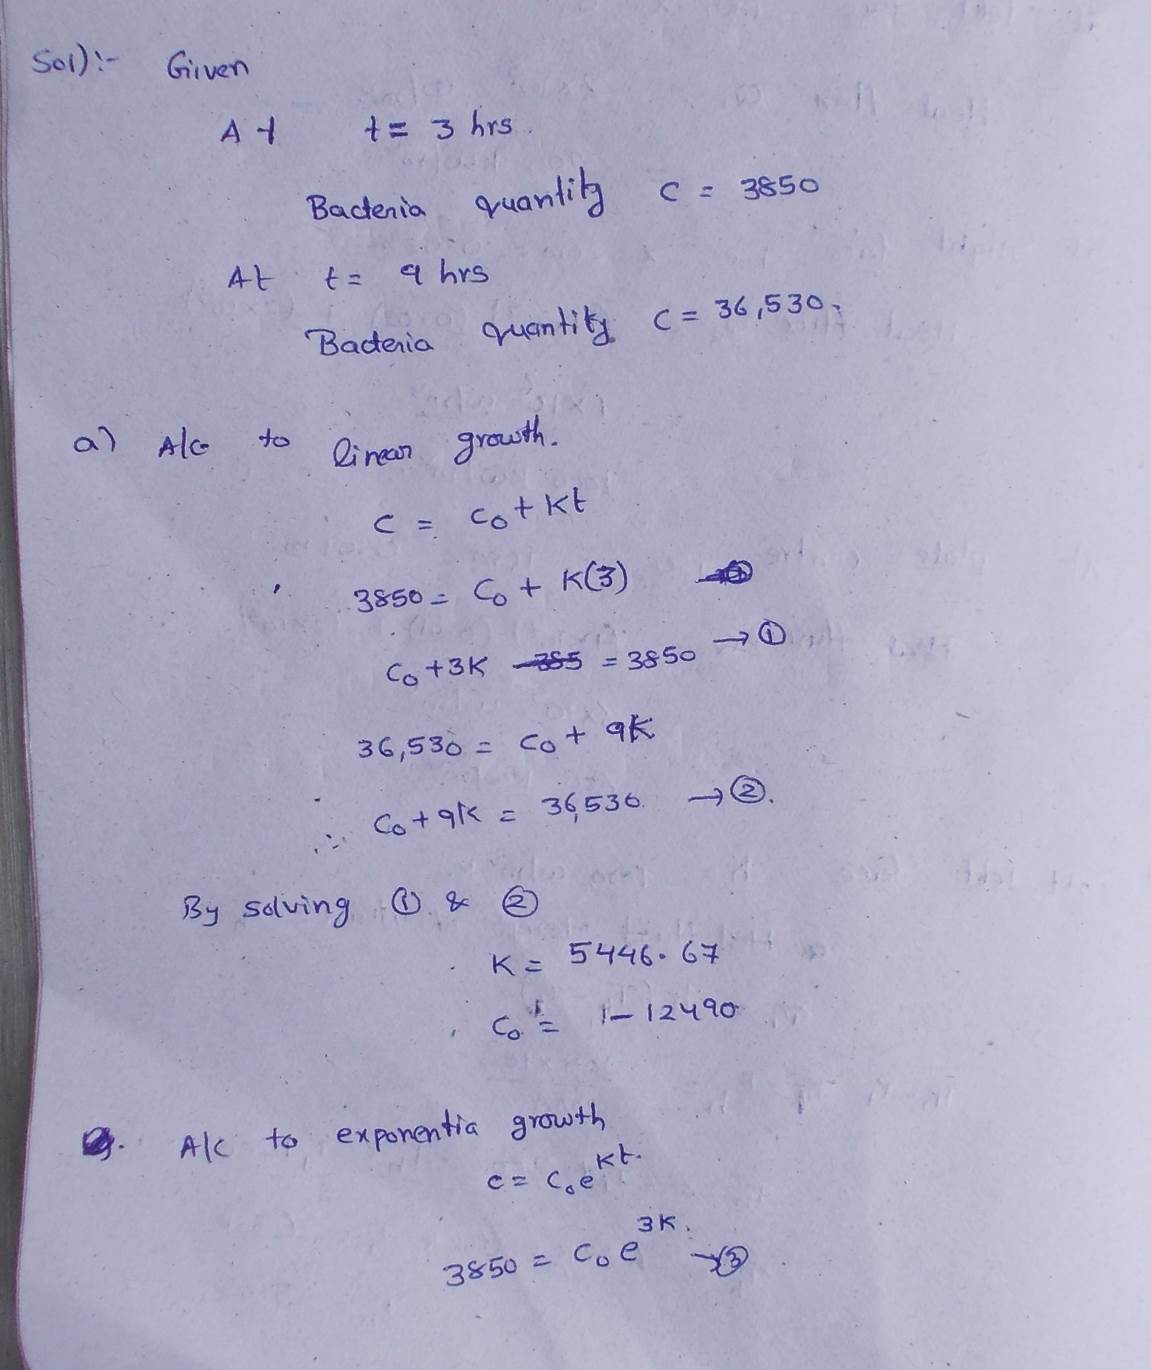 Sol):- Given
At t= 3 hrs.
Bacteria quantity C = 3850
At t= 9 hrs
Bacteria quantity C = 36,530.
a) A/c to linear growth.
C = C₀ + Kt
3850 = C₀ + K(3)
C₀ + 3K = 3850 → ①
36,530 = C₀ + 9K
∴ C₀ + 9K = 36,530 → ②.
By solving ① & ②
K = 5446.67
C₀ = -12490
A/c to exponentia growth
C = C₀e^Kt.
3850 = C₀ e^3K. → ③